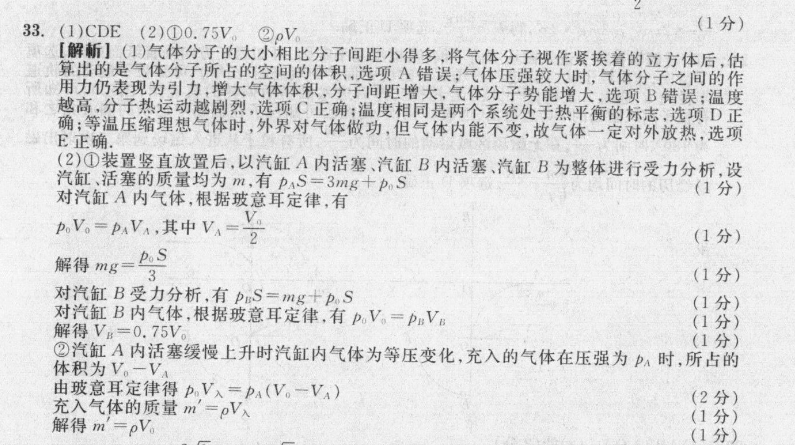 2
(1分)
33. (1)CDE (2)①0.75V₀ ②ρV₀
[解析] (1)气体分子的大小相比分子间距小得多,将气体分子视作紧挨着的立方体后,估
算出的是气体分子所占的空间的体积,选项 A 错误;气体压强较大时,气体分子之间的作
用力仍表现为引力,增大气体体积,分子间距增大,气体分子势能增大,选项 B 错误;温度
越高,分子热运动越剧烈,选项 C 正确;温度相同是两个系统处于热平衡的标志,选项 D 正
确;等温压缩理想气体时,外界对气体做功,但气体内能不变,故气体一定对外放热,选项
E 正确.
(2)①装置竖直放置后,以汽缸 A 内活塞、汽缸 B 内活塞、汽缸 B 为整体进行受力分析,设
汽缸、活塞的质量均为 m,有 p_A S=3mg+p₀S (1分)
对汽缸 A 内气体,根据玻意耳定律,有
p₀V₀=p_A V_A,其中 V_A=V₀/2 (1分)
解得 mg=p₀S/3 (1分)
对汽缸 B 受力分析,有 p_B S=mg+p₀S (1分)
对汽缸 B 内气体,根据玻意耳定律,有 p₀V₀=p_B V_B (1分)
解得 V_B=0.75V₀ (1分)
②汽缸 A 内活塞缓慢上升时汽缸内气体为等压变化,充入的气体在压强为 p_A 时,所占的
体积为 V₀-V_A
由玻意耳定律得 p₀V入=p_A(V₀-V_A) (2分)
充入气体的质量 m′=ρV入 (1分)
解得 m′=ρV₀ (1分)